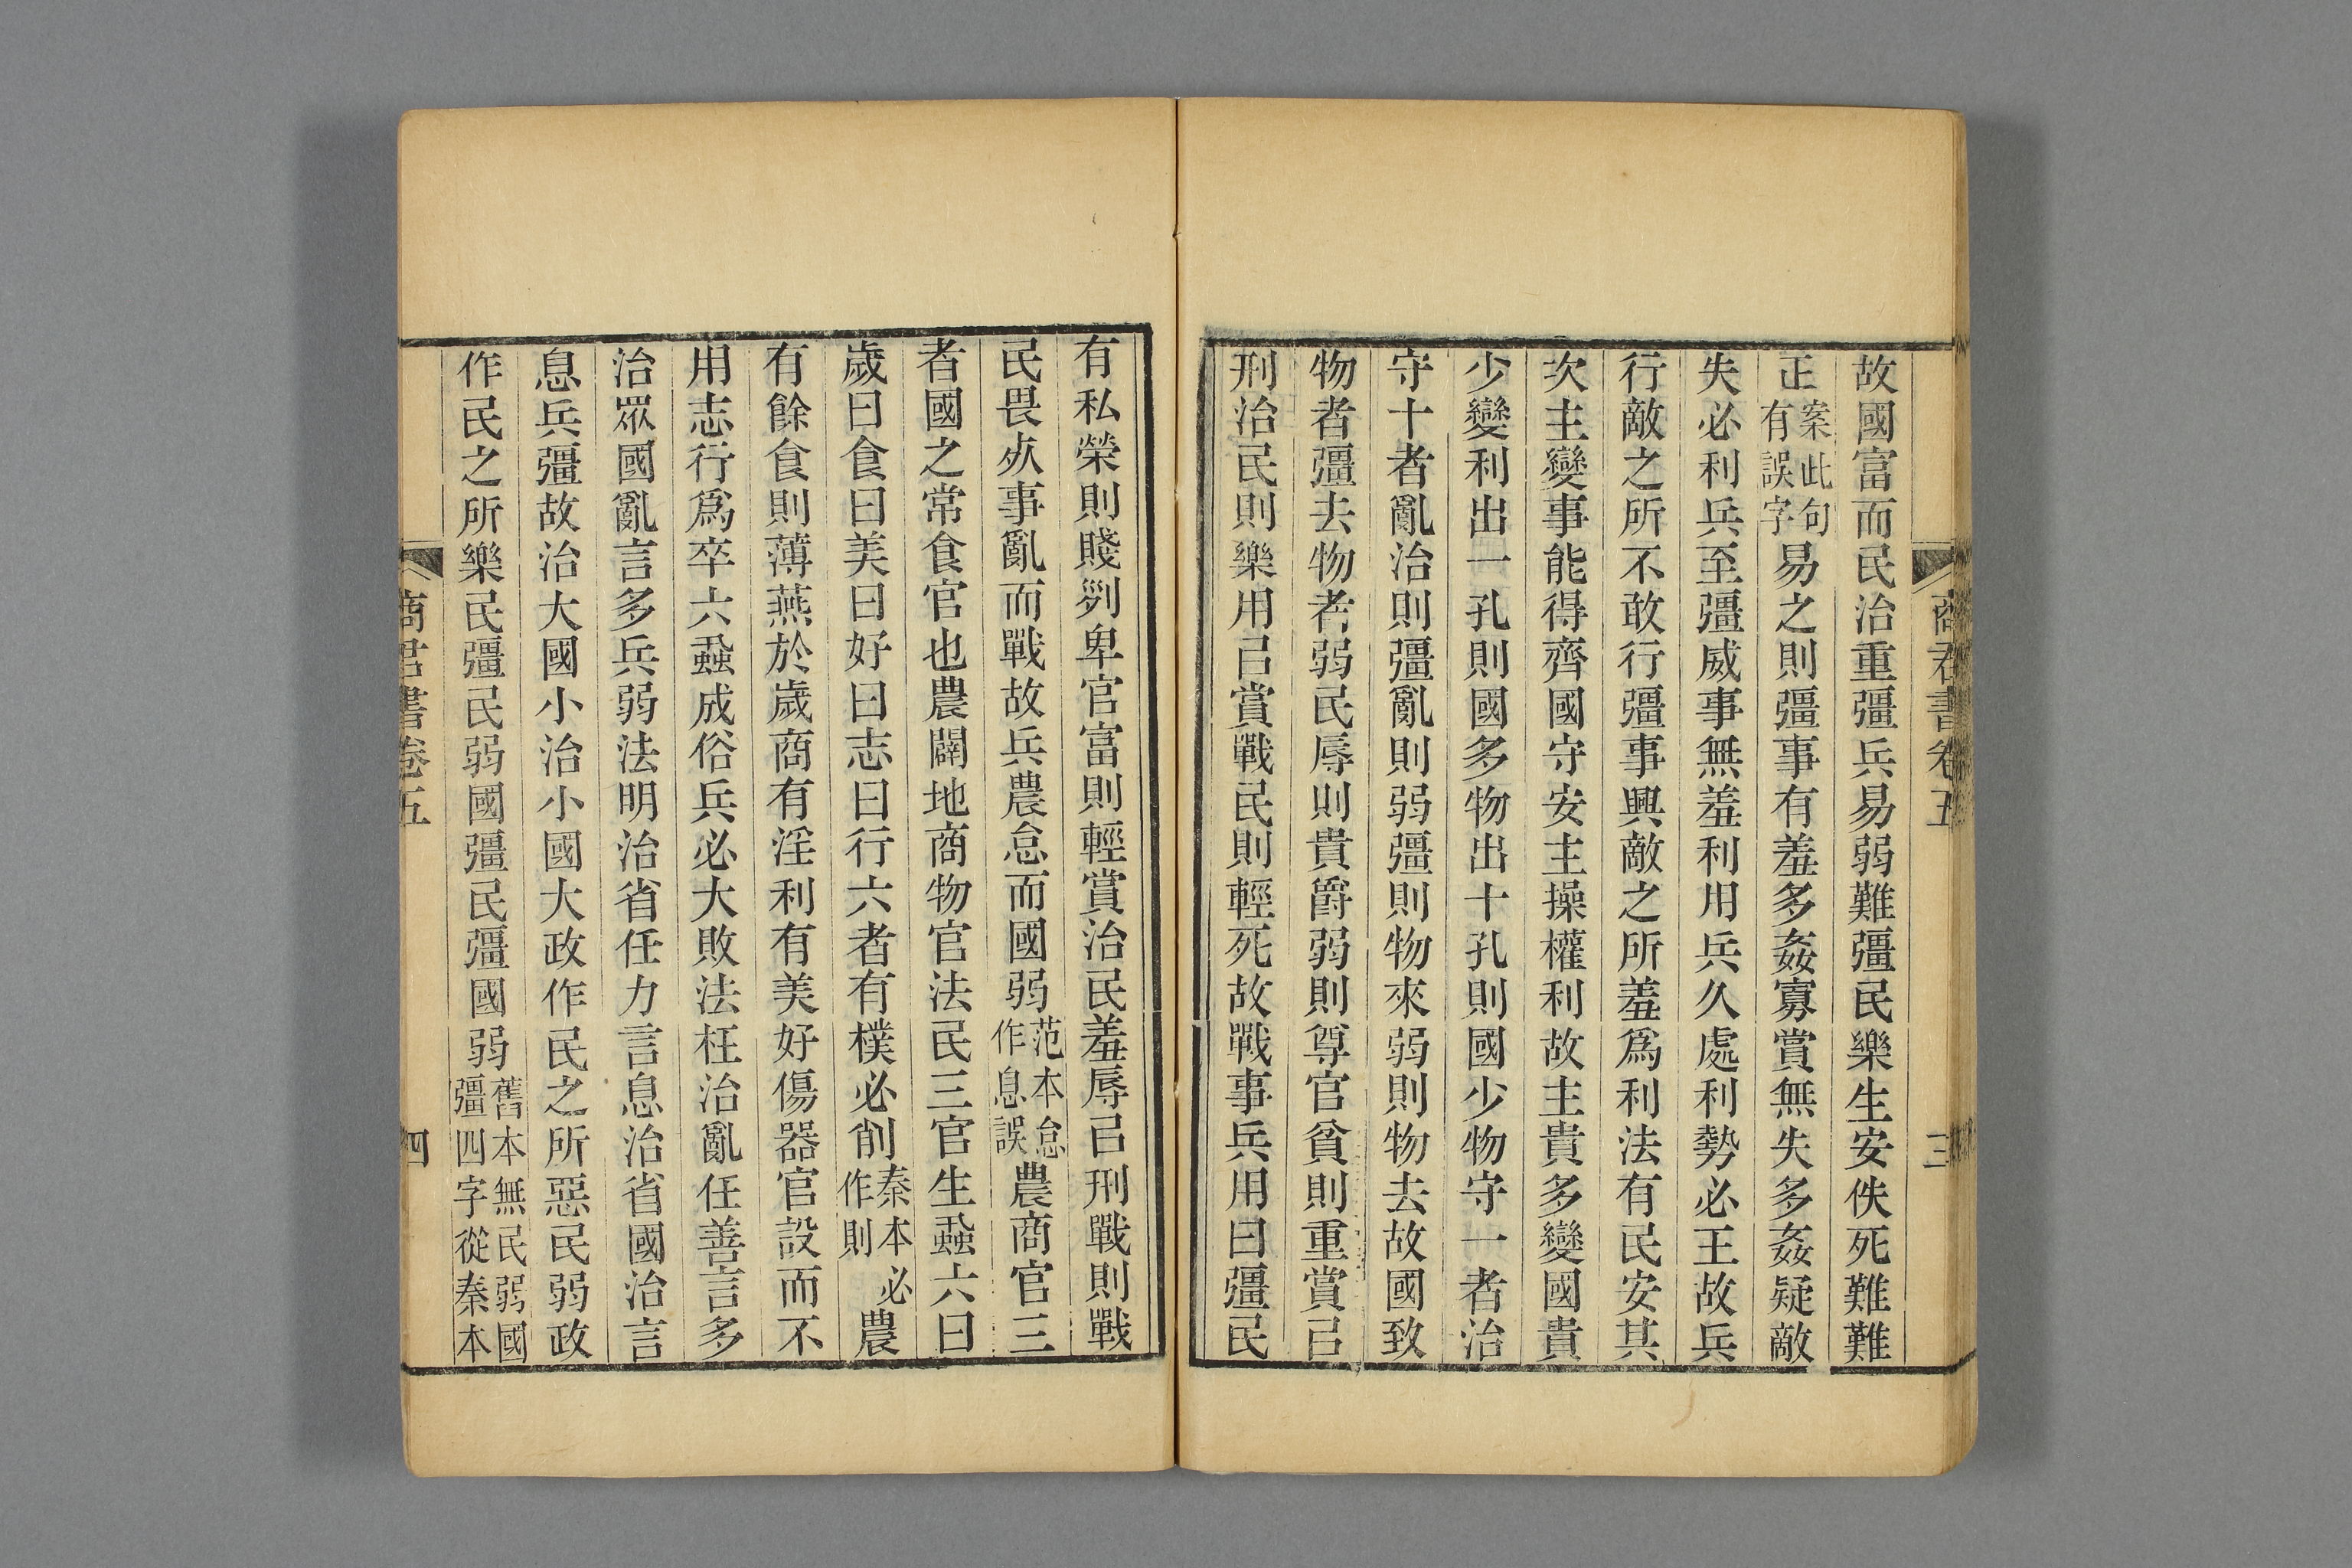 故國富而民治重彊兵易弱難彊民樂生安佚死難難
正案此句有誤字易之則彊事有羞多姦寡賞無失多姦疑敵
失必利兵至彊威事無羞利用兵久處利勢必王故兵
行敵之所不敢行彊事興敵之所羞爲利法有民安其
次主變事能得齊國守安主操權利故主貴多變國貴
少變利出一孔則國多物出十孔則國少物守一者治
守十者亂治則彊亂則弱彊則物來弱則物去故國致
物者彊去物者弱民辱則貴爵弱則尊官貧則重賞㠯
刑治民則樂用㠯賞戰民則輕死故戰事兵用曰彊民
商君書卷五
三
有私榮則賤列卑官富則輕賞治民羞辱㠯刑戰則戰
民畏㱙事亂而戰故兵農怠而國弱范本怠作息誤農商官三
者國之常食官也農闢地商物官法民三官生蝨六曰
歲曰食曰美曰好曰志曰行六者有樸必削秦本必作則農
有餘食則薄燕於歲商有淫利有美好傷器官設而不
用志行爲卒六蝨成俗兵必大敗法枉治亂任善言多
治眾國亂言多兵弱法明治省任力言息治省國治言
息兵彊故治大國小治小國大政作民之所惡民弱政
作民之所樂民彊民弱國彊民彊國弱舊本無民弱國彊四字從秦本
商君書卷五
四